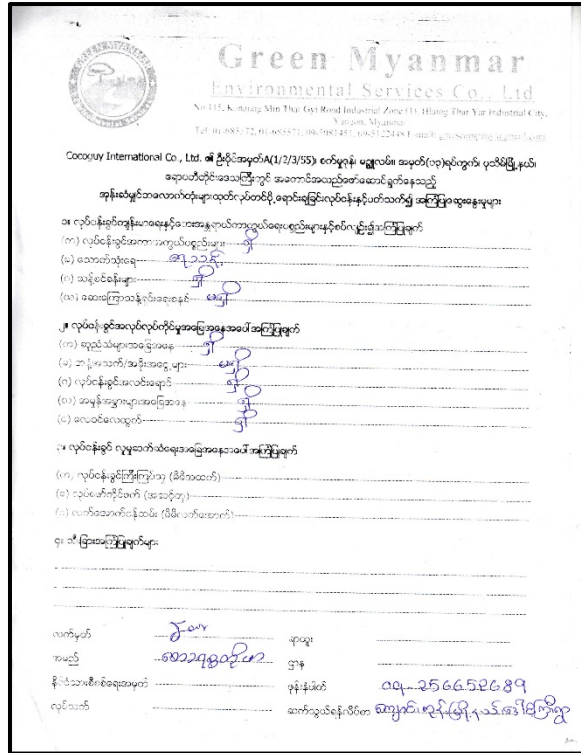 Green Myanmar
Environmental Services Co., Ltd
No.115, Kanaung Min Thar Gyi Road Industrial Zone (1), Hlaing Thar Yar Industrial City,
Yangon, Myanmar
Tel: 01-685572, 01-685571, 09-5081451, 09-5122448 E-mail:
Cocoguy International Co., Ltd. ၏ ဦးပိုင်အမှတ်A(1/2/3/55)၊ စက်မှုဇုန်၊ အမှတ်(၁၃)ရပ်ကွက်၊ ပုသိမ်မြို့နယ်၊
ဧရာဝတီတိုင်းဒေသကြီးတွင် အကောင်အထည်ဖော်ဆောင်ရွက်နေသည့်
အုန်းဆံမျှင်ဘလောက်တုံးများထုတ်လုပ်တင်ပို့ရောင်းချခြင်းလုပ်ငန်းနှင့်ပတ်သက်၍ အကြံပြုဆွေးနွေးမှုများ
၁။ လုပ်ငန်းခွင်ကျန်းမာရေးနှင့်ဘေးအန္တရာယ်ကာကွယ်ရေးပစ္စည်းများနှင့်စပ်လျဉ်း၍အကြံပြုချက်
(က) လုပ်ငန်းခွင်အကာအကွယ်ပစ္စည်းများ ရှိ
(ခ) သောက်သုံးရေ
(ဂ) သန့်စင်ခန်းများ ရှိ
(ဃ) ဆေးကြောသန့်ရှင်းရေးစနစ် မရှိ
၂။ လုပ်ငန်းခွင်အလုပ်လုပ်ကိုင်မှုအခြေအနေအပေါ် အကြံပြုချက်
(က) ဆူညံသံများအခြေအနေ ရှိ
(ခ) ဘန့်အသက်/အခိုးအငွေ့များ မရှိ
(ဂ) လုပ်ငန်းခွင်အလင်းရောင် ရှိ
(ဃ) အမှုန်အမွှားများအခြေအနေ ရှိ
(င) လေဝင်လေထွက် ရှိ
၃။ လုပ်ငန်းခွင် လူမှုဆက်ဆံရေးအခြေအနေအပေါ် အကြံပြုချက်
(က) လုပ်ငန်းခွင်ကြီးကြပ်သူ (မိမိအထက်)
(ခ) လုပ်ဖော်ကိုင်ဖက် (အဆင့်တူ)
(ဂ) လက်အောက်ဝန်ထမ်း (မိမိလက်အောက်)
၄။ အခြားအကြံပြုချက်များ
လက်မှတ် ရာထူး
အမည် ဌာန
နိုင်ငံသားစိစစ်ရေးအမှတ် ဖုန်းနံပါတ် 09-256652689
လုပ်သက် ဆက်သွယ်ရန်လိပ်စာ